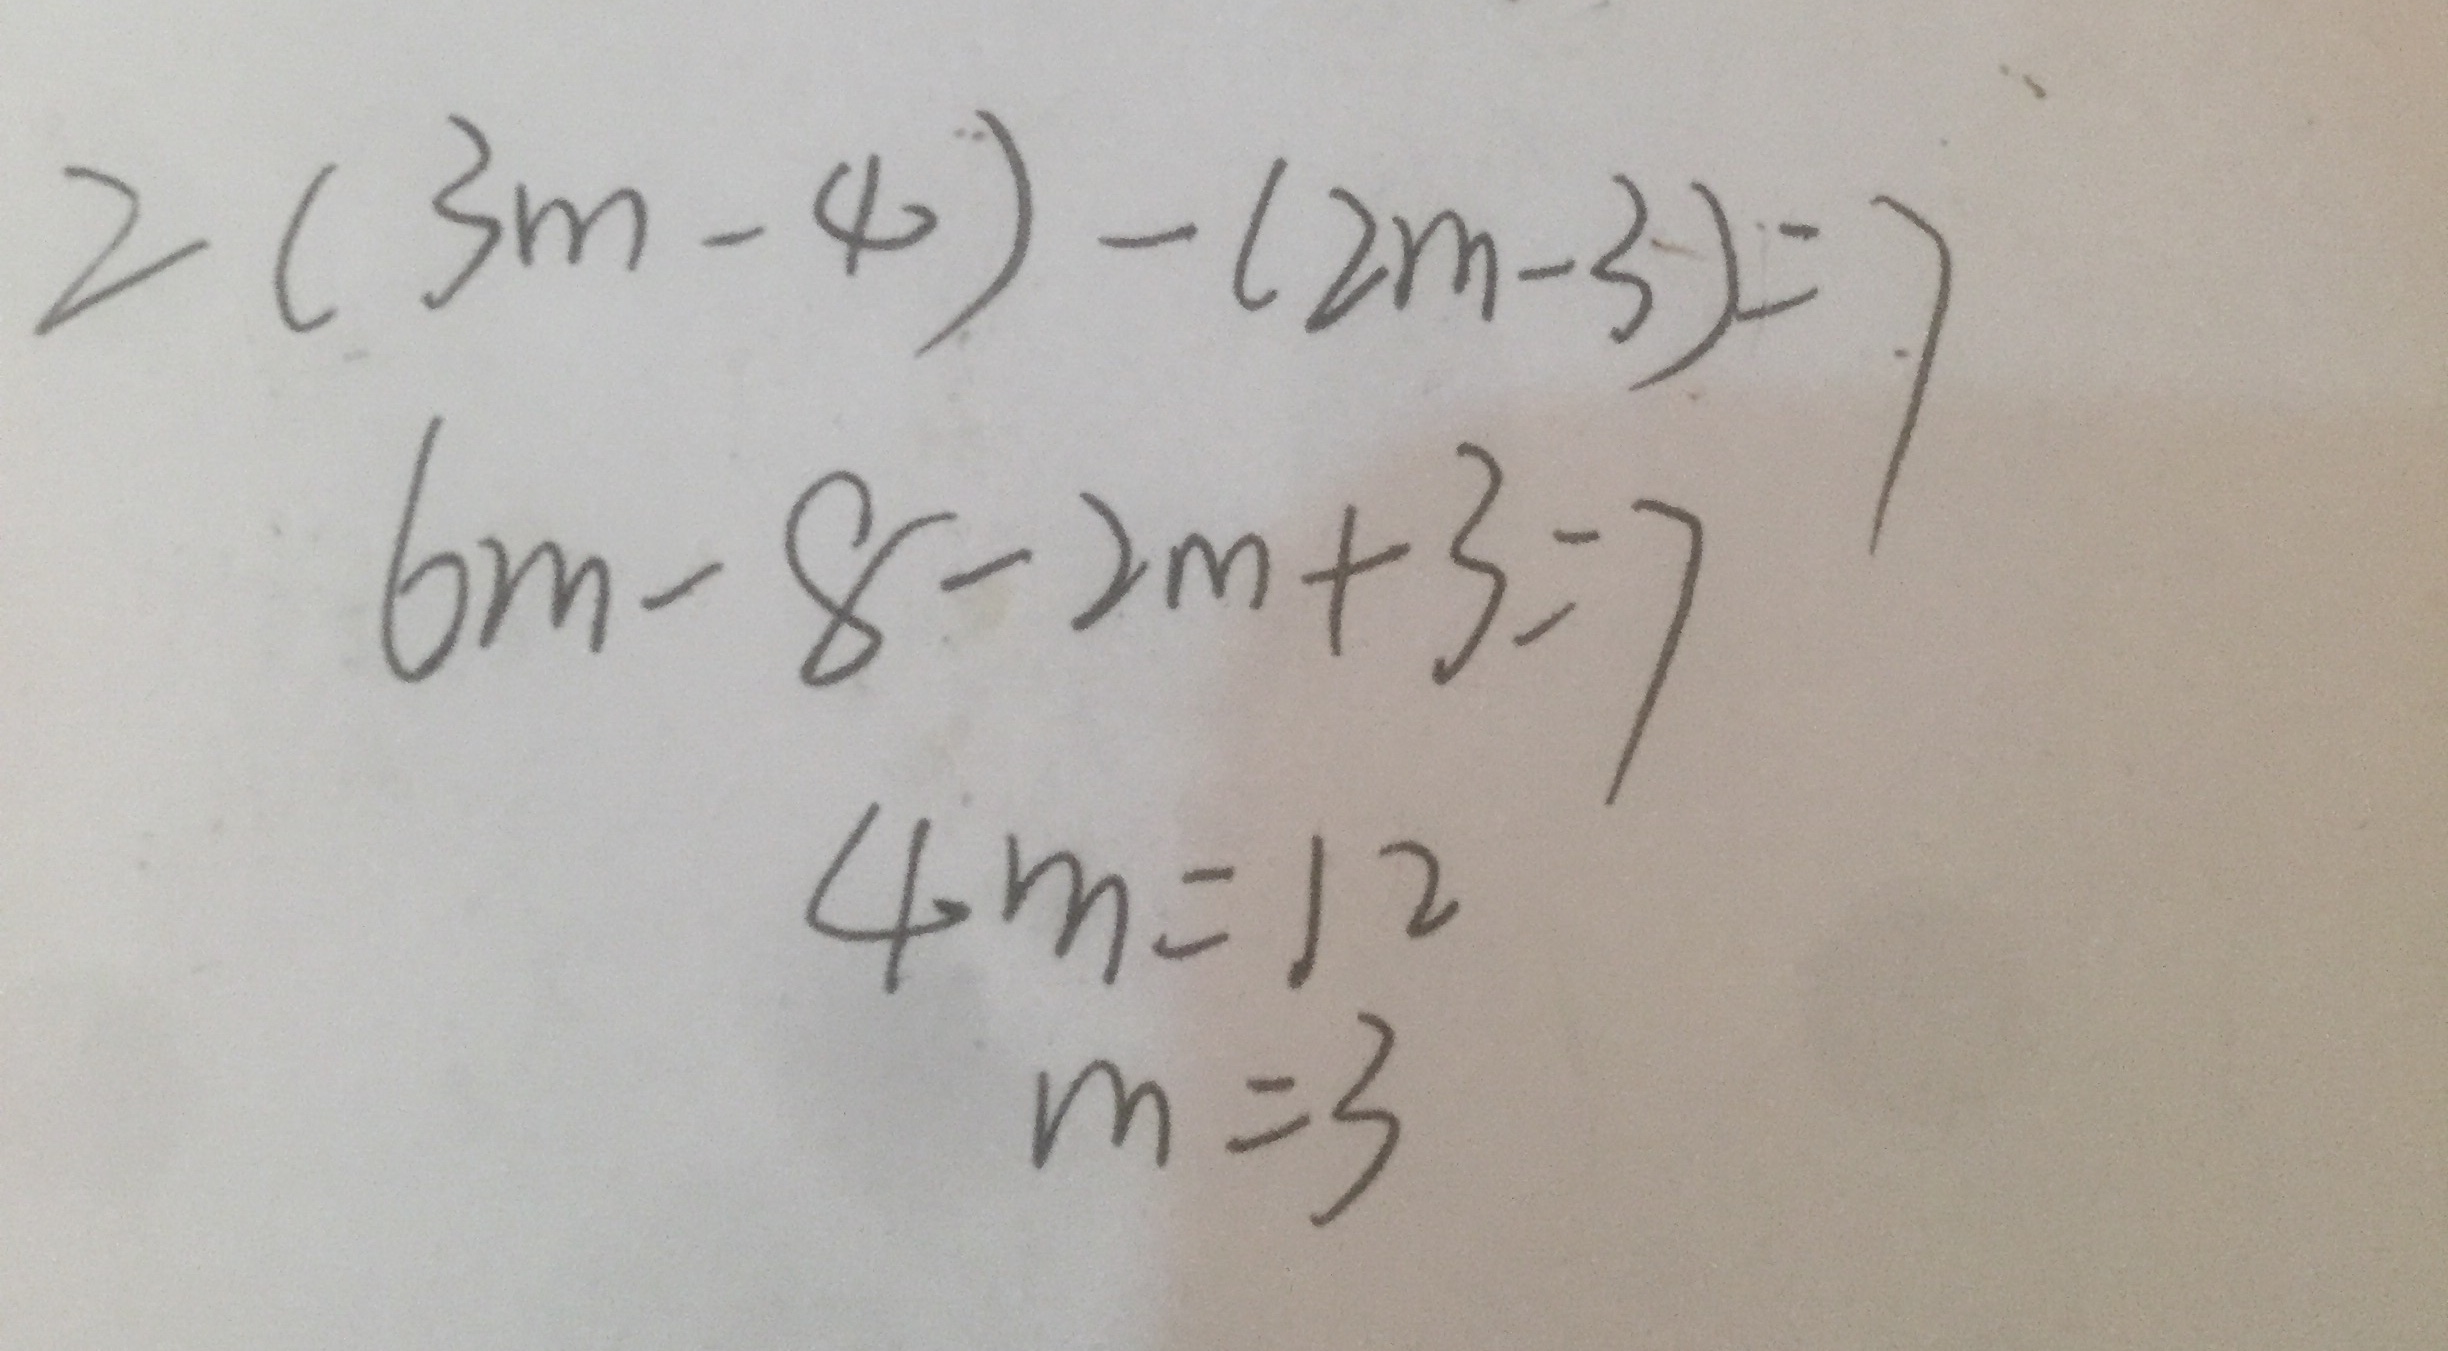 2(3m-4)-(2m-3)=7
6m-8-2m+3=7
4m=12
m=3